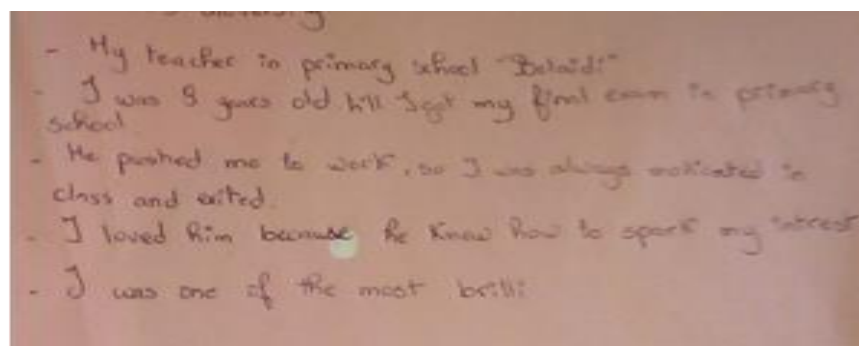 - My teacher in primary school "Belaidi"
- I was 8 years old till I got my final exam in primary
school
- He pushed me to work, so I was always motivated in
class and exited.
- I loved him because he knew how to spark my interest
- I was one of the most brilli